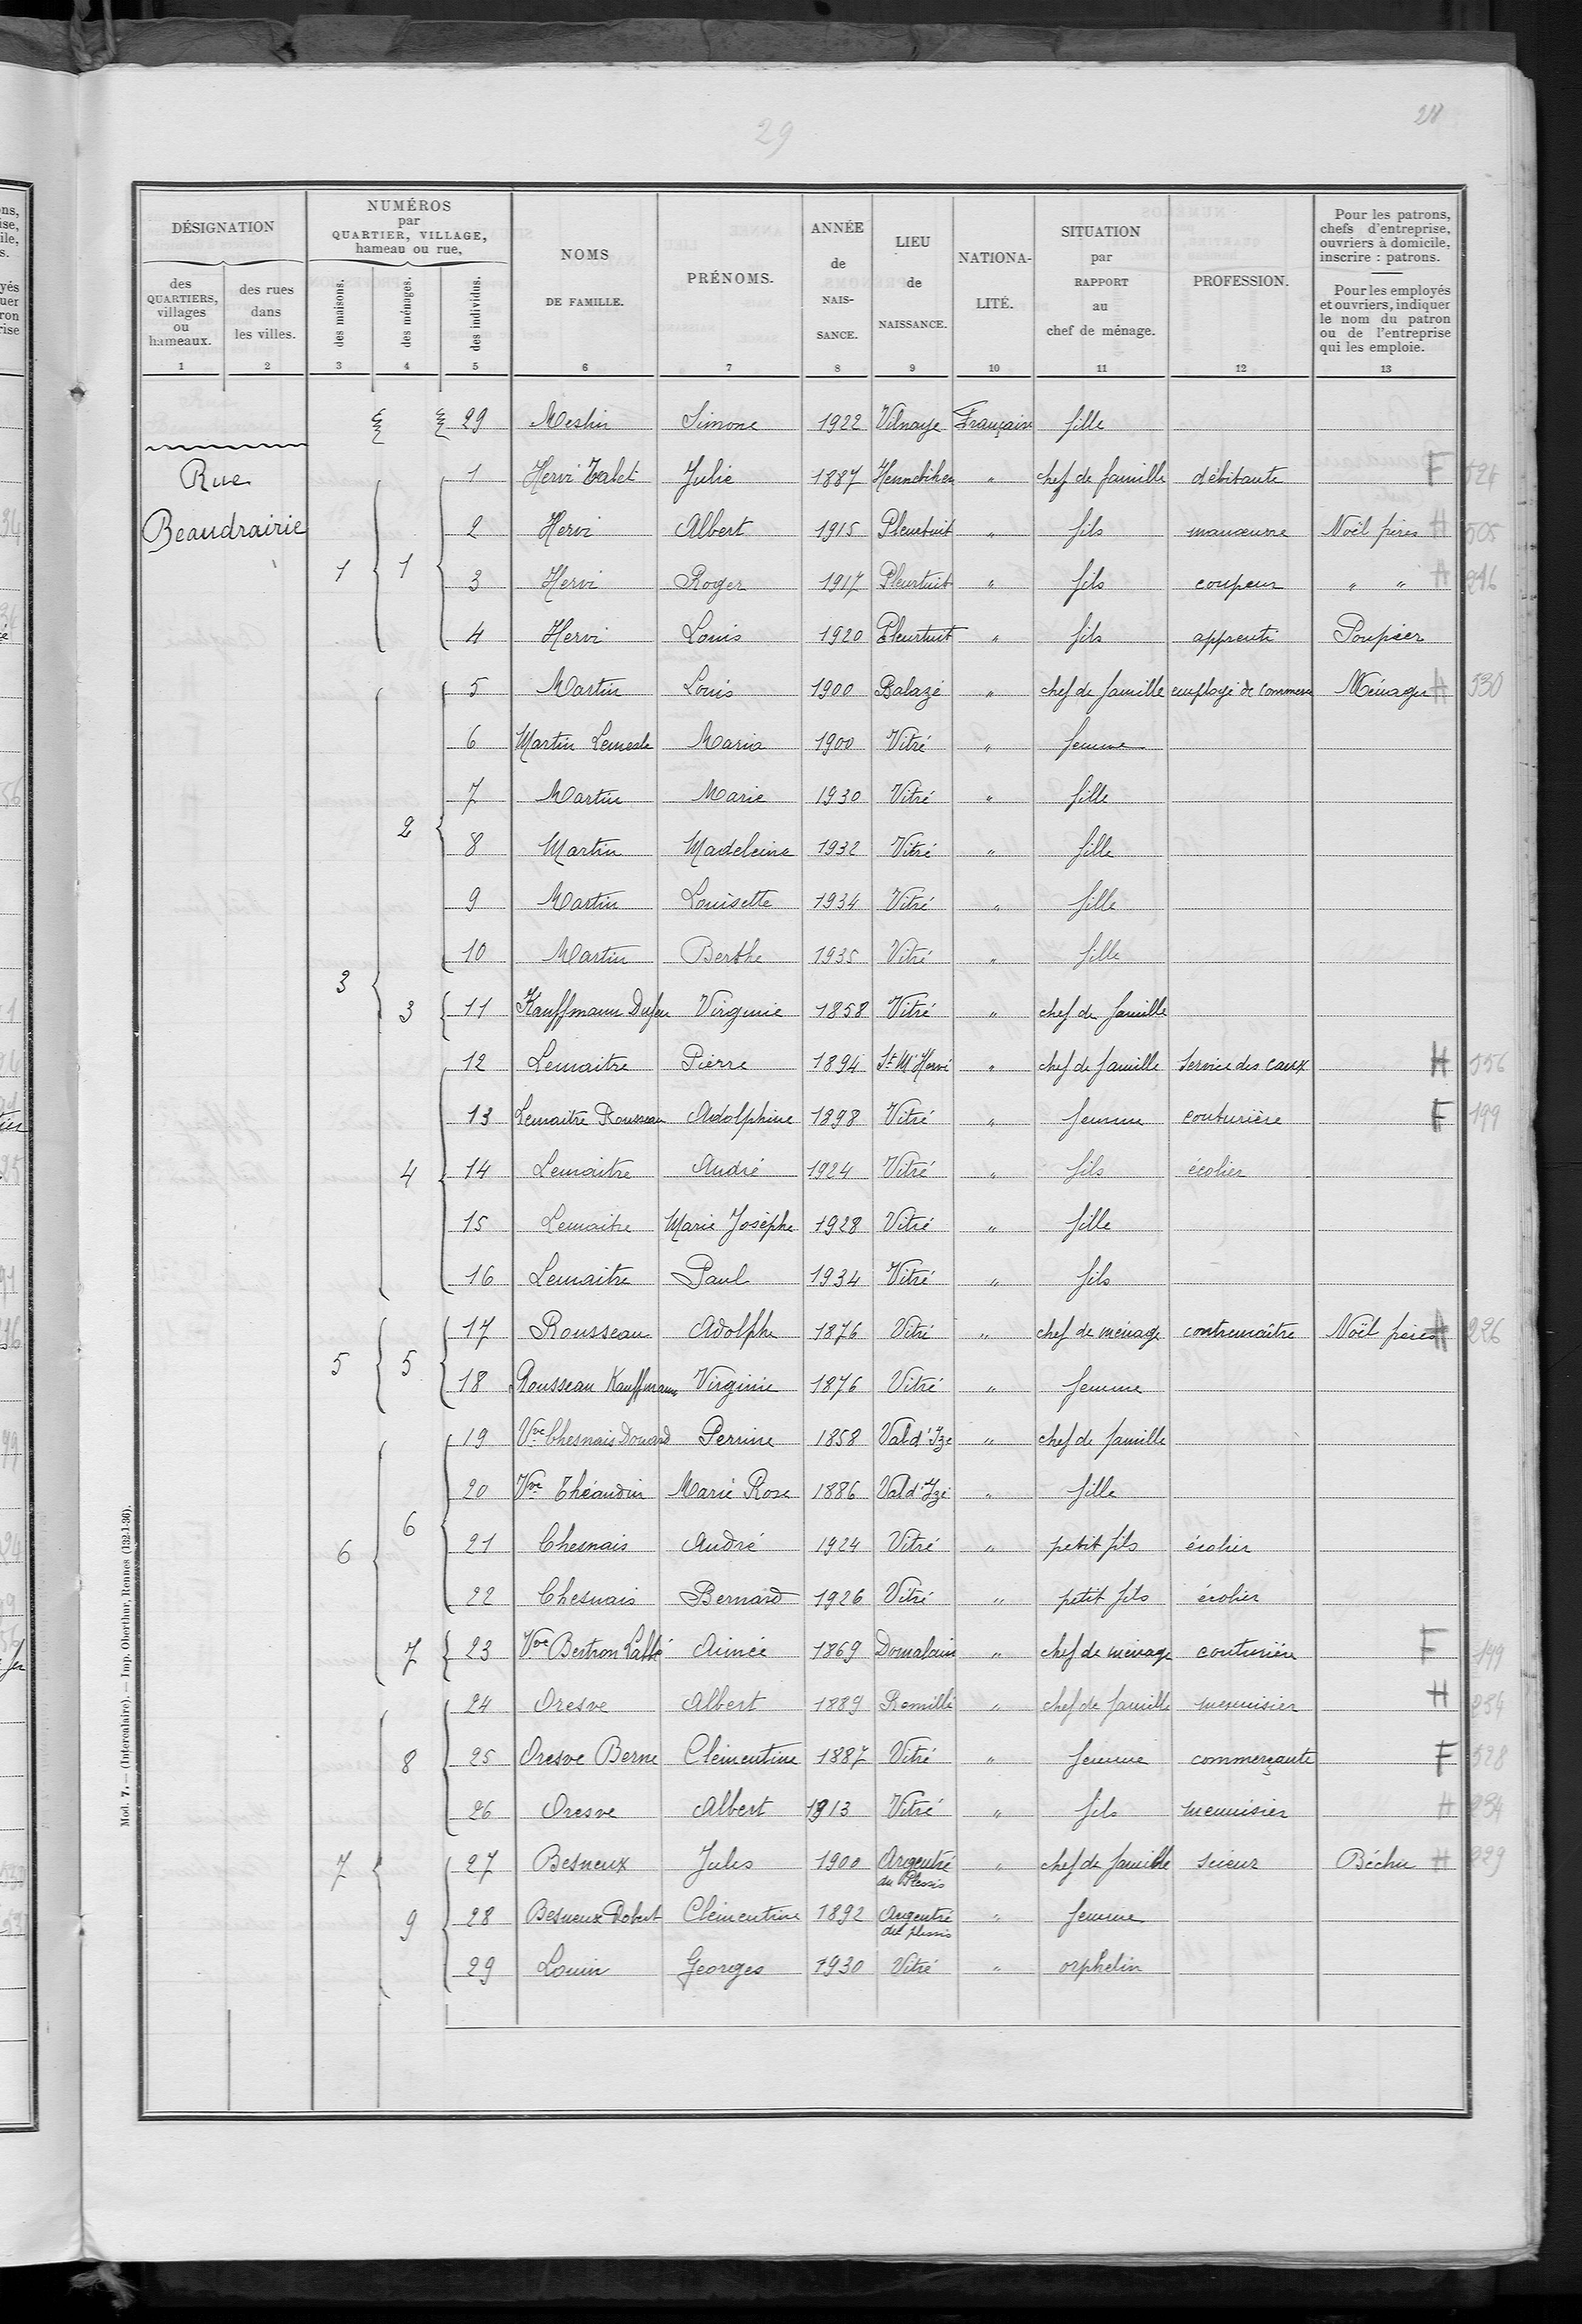 29
DÉSIGNATION
des QUARTIERS, villages ou hameaux.
des rues dans les villes.
NUMÉROS par QUARTIER, VILLAGE, hameau ou rue,
des maisons.
des ménages.
des individus.
NOMS DE FAMILLE.
PRÉNOMS.
ANNÉE de NAISSANCE.
LIEU de NAISSANCE.
NATIONALITÉ.
SITUATION par RAPPORT au chef de ménage.
PROFESSION.
Pour les patrons, chefs d'entreprise, ouvriers à domicile, inscrire : patrons.
Pour les employés et ouvriers, indiquer le nom du patron ou de l'entreprise qui les emploie.
1 2 3 4 5 6 7 8 9 10 11 12 13
29 Simone 1922 Française fille
Rue
1 Julie 1887 " chef de famille débitante F
Beaudrairie
2 Hervi Albert 1915 Pleurtuit " fils manœuvre Noël frères H 505
1 1
3 Hervi Roger 1917 Pleurtuit " fils coupeur " " H
4 Hervi Louis 1920 Pleurtuit " fils apprenti
5 Martin Louis 1900 Balazé " chef de famille employé de commerce Ménager H 530
6 Martin Lemesle Maria 1900 Vitré " femme
7 Martin Marie 1930 Vitré " fille
2
8 Martin Madeleine 1932 Vitré " fille
9 Martin Louisette 1934 Vitré " fille
10 Martin Berthe 1935 Vitré " fille
3 3
11 Kauffmann Virginie 1858 Vitré " chef de famille
12 Lemaitre Pierre 1894 St M Hervé " chef de famille Service des eaux H 556
13 Lemaitre Rousseau Adolphine 1898 Vitré " femme couturière F 199
4
14 Lemaitre André 1924 Vitré " fils écolier
15 Lemaitre Marie Josèphe 1928 Vitré " fille
16 Lemaitre Paul 1934 Vitré " fils
17 Rousseau Adolphe 1876 Vitré " chef de ménage contremaître Noël frères H 226
5 5
18 Rousseau Kauffmann Virginie 1876 Vitré " femme
19 Vve Chesnais Douard Perrine 1858 Val d'Izé " chef de famille
20 Vve Théaudin Marie Rose 1886 Val d'Izé " fille
6 6
21 Chesnais André 1924 Vitré " petit fils écolier
22 Chesnais Bernard 1926 Vitré " petit fils écolier
7
23 Vve Bertron Labbé Aimée 1869 Domalain " chef de ménage couturière F 199
24 Oresve Albert 1889 Romillé " chef de famille menuisier H 234
8
25 Oresve Berne Clémentine 1887 Vitré " femme commerçante F 528
26 Oresve Albert 1913 Vitré " fils menuisier H 234
7
27 Besneux Jules 1900 Argentré du Plessis " chef de famille scieur Béchu H 229
9
28 Besneux Clémentine 1892 Argentré du plessis " femme
29 Louin Georges 1930 Vitré " orphelin
Mod. 7. — (Intercalaire). — Imp. Oberthur, Rennes (132-1-36).